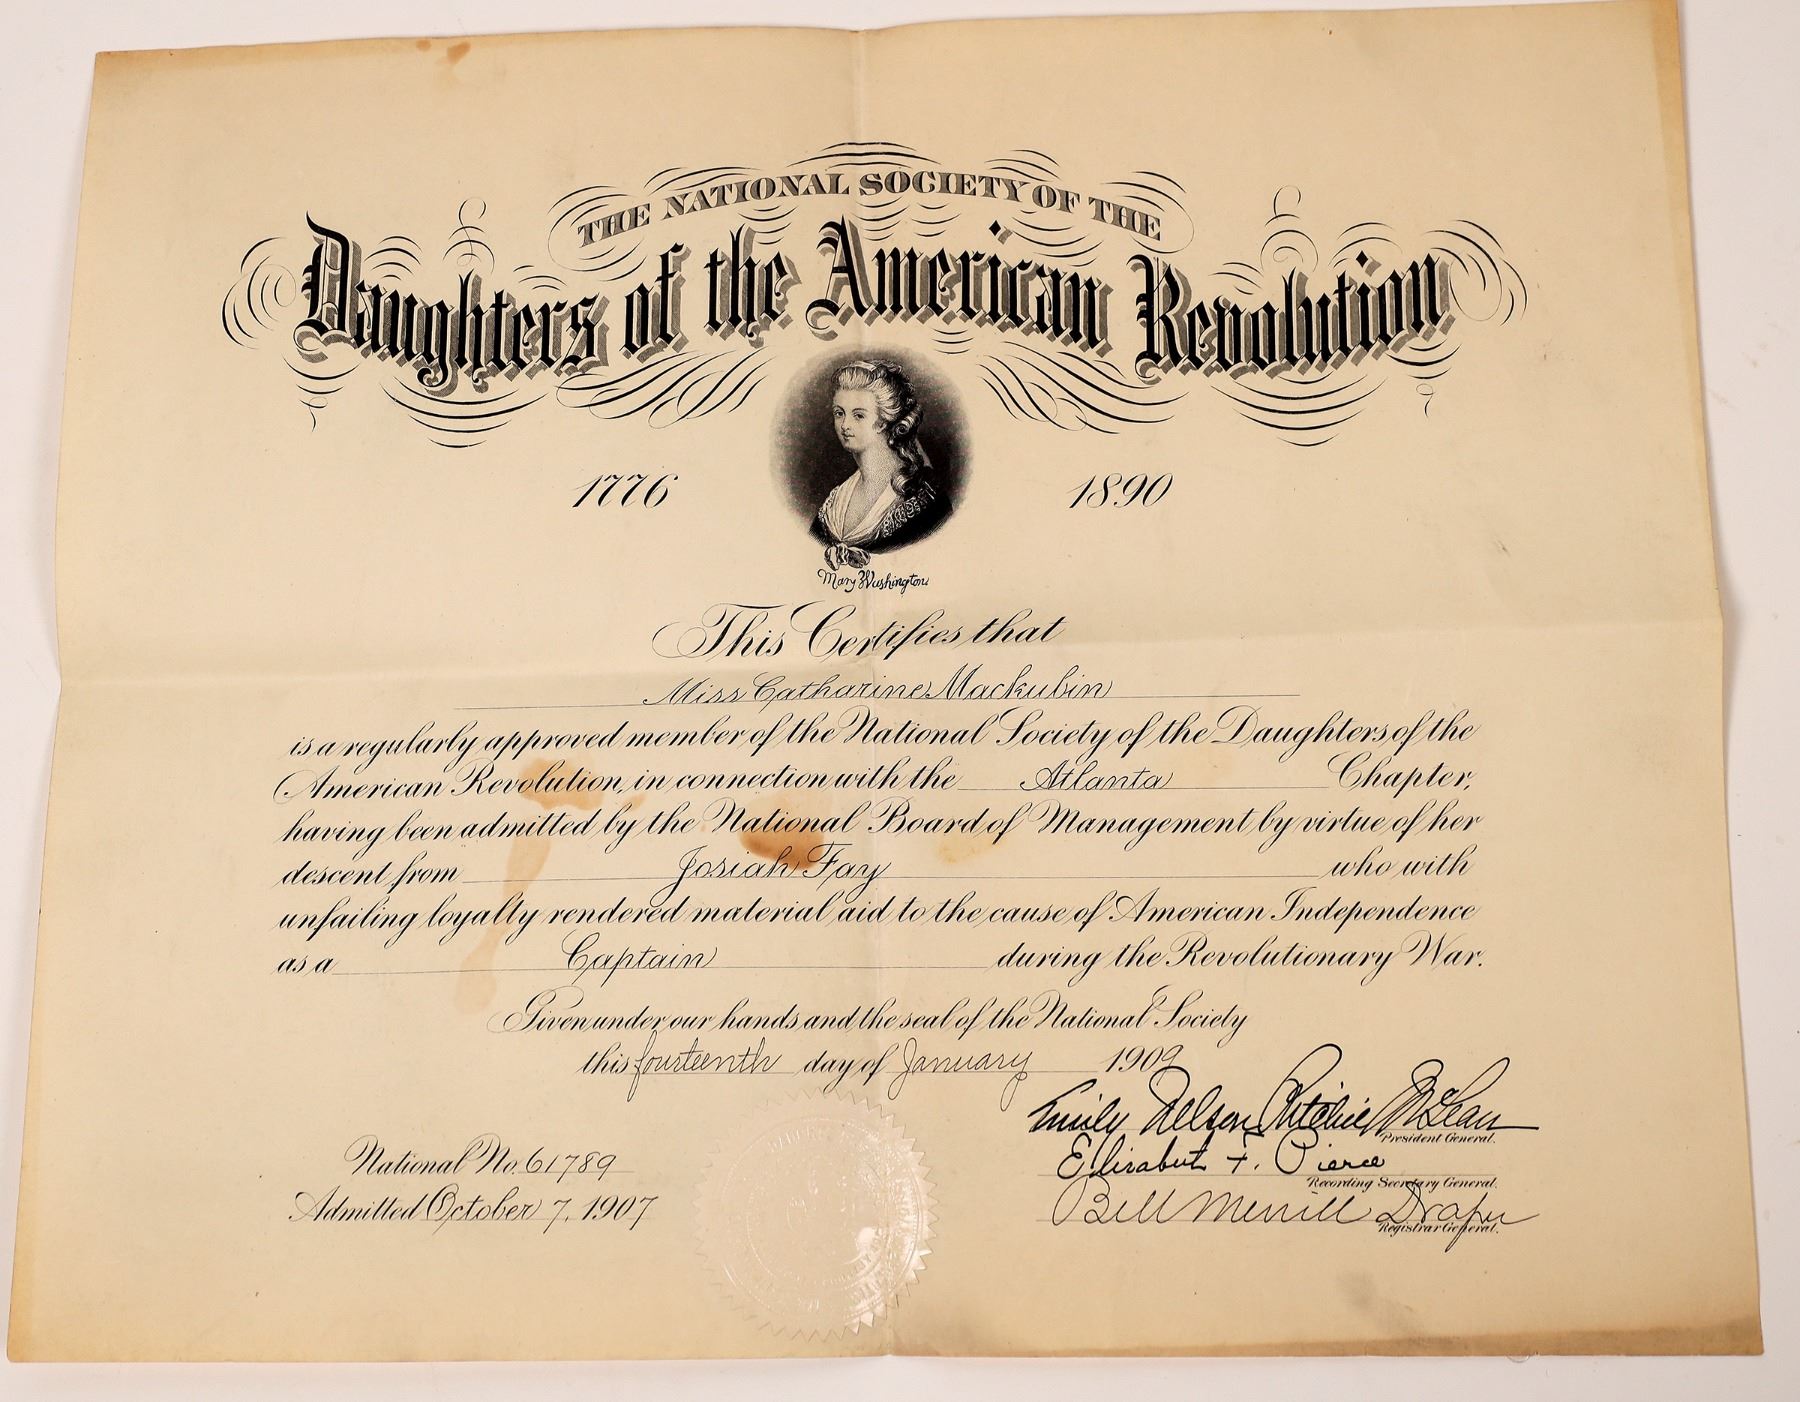 THE NATIONAL SOCIETY OF THE
Daughters of the American Revolution
1776 1890
Mary Washington
This Certifies that
Miss Catharine Mackubin
is a regularly approved member of the National Society of the Daughters of the
American Revolution, in connection with the Atlanta Chapter,
having been admitted by the National Board of Management by virtue of her
descent from Josiah Fay who with
unfailing loyalty rendered material aid to the cause of American Independence
as a Captain during the Revolutionary War.
Given under our hands and the seal of the National Society
this fourteenth day of January 1909
Emily Nelson Ritchie McLean
President General.
Elisabeth F. Pierce
Recording Secretary General.
Bell Merrill Draper
Registrar General.
National No. 61789
Admitted October 7, 1907